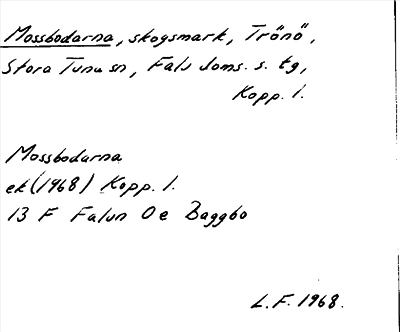 Mossbodarna, skogsmark, Trönö,
Stora Tuna sn, Falu doms. s. tg,
Kopp. l.
Mossbodarna
ek (1968) Kopp. l.
13 F Falun 0 e Baggbo
L.F. 1968.